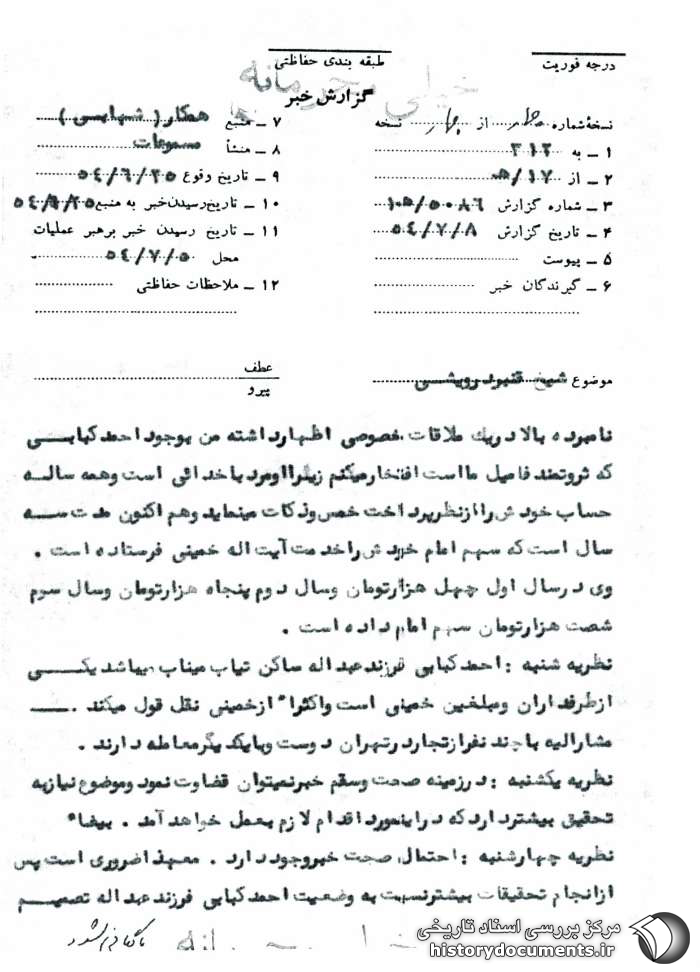 درجه فوریت
طبقه بندی حفاظتی
خیلی محرمانه
گزارش خبر
نسخهٔ شماره چهار از چهار نسخه
۱ ـ به ۳۱۲
۲ ـ از ۱۷/ﻫ
۳ ـ شماره گزارش ۵۰۸۶/۱۰ﻫ
۴ ـ تاریخ گزارش ۵۴/۷/۸
۵ ـ پیوست
۶ ـ گیرندگان خبر
۷ ـ منبع همکار ( شهابسی )
۸ ـ منشأ مسموعات
۹ ـ تاریخ وقوع ۵۴/۶/۲۵
۱۰ ـ تاریخ رسیدن خبر به منبع ۵۴/۶/۲۵
۱۱ ـ تاریخ رسیدن خبر برهبر عملیات
محل ۵۴/۷/۵
۱۲ ـ ملاحظات حفاظتی
موضوع شیخ قنبر درویشی
عطف
پیرو
نامبرده بالا در یك ملاقات خصوصی اظهار داشته من بوجود احمد کبابی
که ثروتمند فامیل ما است افتخار میکنم زیرا او مرد باخدائی است وهمه ساله
حساب خودش را از نظر پرداخت خمس وذکات مینماید وهم اکنون مدت سه
سال است که سهم امام خودش را خدمت آیت اله خمینی فرستاده است .
وی در سال اول چهل هزارتومان وسال دوم پنجاه هزارتومان وسال سوم
شصت هزارتومان سهم امام داده است .
نظریه شنبه : احمد کبابی فرزند عبداله ساکن تیاب میناب میباشد یکی
از طرفداران ومبلغین خمینی است واکثراً از خمینی نقل قول میکند .
مشارالیه با چند نفر از تجار در تهران دوست وبا یکدیگر معامله دارند .
نظریه یکشنبه : در زمینه صحت وسقم خبر نمیتوان قضاوت نمود وموضوع نیاز به
تحقیق بیشتر دارد که در اینمورد اقدام لازم بعمل خواهد آمد . بیضاء
نظریه چهارشنبه : احتمال صحت خبر وجود دارد . معهذا ضروری است پس
از انجام تحقیقات بیشتر نسبت به وضعیت احمد کبابی فرزند عبداله تصمیم
مرکز بررسی اسناد تاریخی
historydocuments.ir